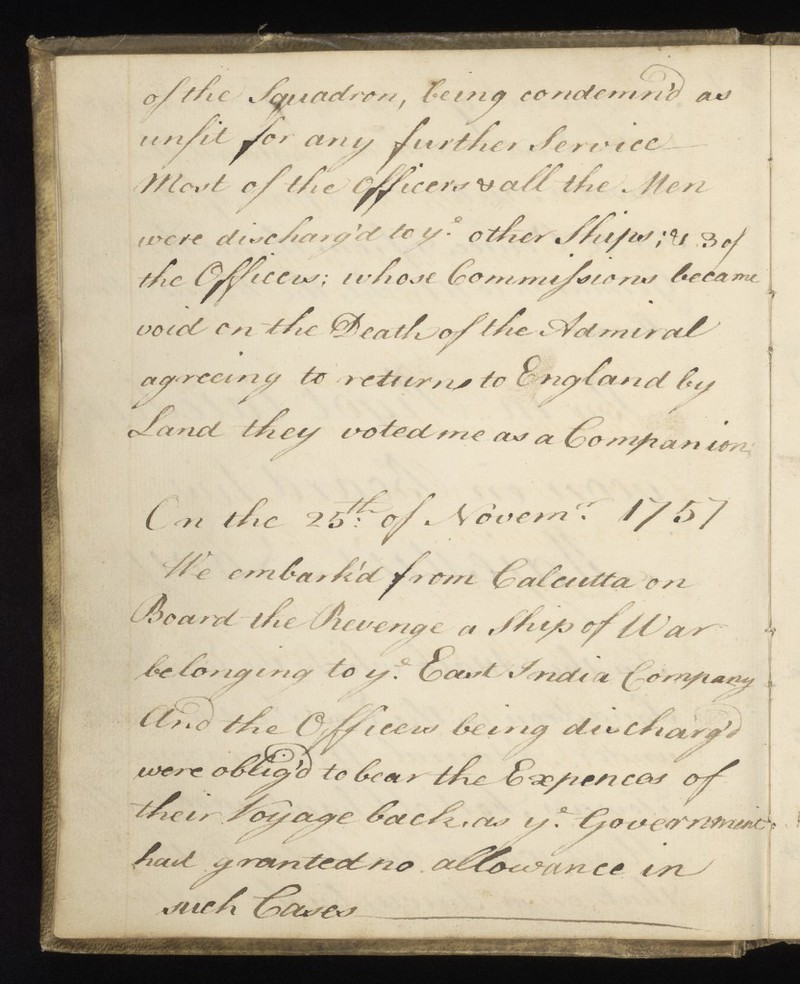 of the Squadron, being condemn'd as
unfit for any further Service
Most of the Officers & all the Men
were discharg'd to yᵉ other Ships; & 3 of
the Officers; whose Commissions became
void on the Death of the Admiral
agreeing to returne to England by
Land they voted me as a Companion;
On the 25th: of Novemʳ. 1757
We embark'd from Calcutta on
Board the Revenge a Ship of War
belonging to yᵉ East India Company
And the Officers being discharg'd
were oblig'd to bear the Expences of
their Voyage back, as yᵉ Government
had granted no allowance in
such Cases